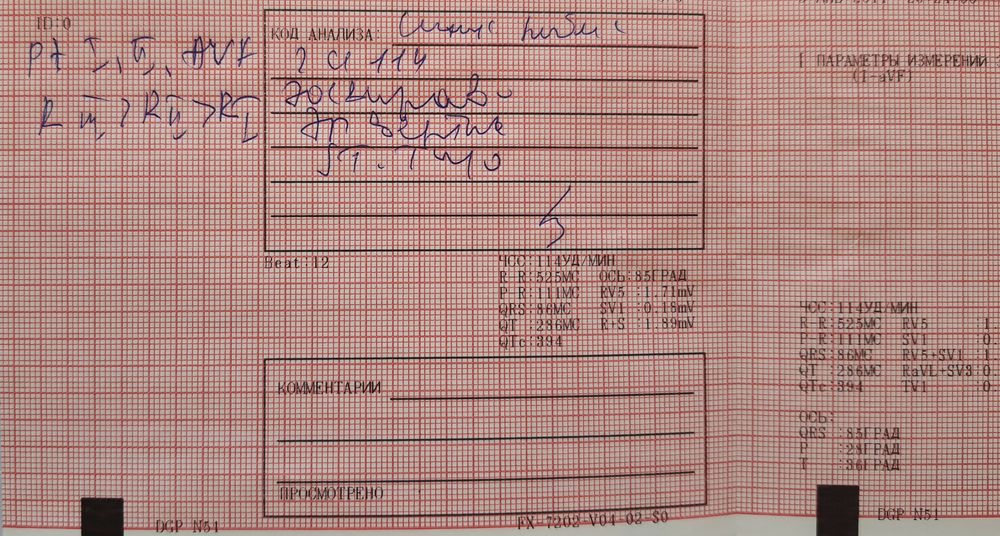 ID:0
P+ I, II, AVF
R III > R II > R I
КОД АНАЛИЗА: Синус
ЧСС 114
ST-T
Beat:12
ЧСС:114УД/МИН
R-R:525МС ОСЬ:85ГРАД
P-R:111МС RV5 :1.71mV
QRS:86МС SV1 :0.18mV
QT :286МС R+S :1.89mV
QTc:394
КОММЕНТАРИИ
ПРОСМОТРЕНО
DGP N51
FX-7202-V04-02-S0
[ ПАРАМЕТРЫ ИЗМЕРЕНИЙ
(I-aVF)
ЧСС:114УД/МИН
R-R:525МС RV5 :1
P-R:111МС SV1 :0.
QRS:86МС RV5+SV1 :1
QT :286МС RaVL+SV3:0
QTc:394 TV1 :0.
ОСЬ:
QRS :85ГРАД
P :28ГРАД
T :36ГРАД
DGP N51